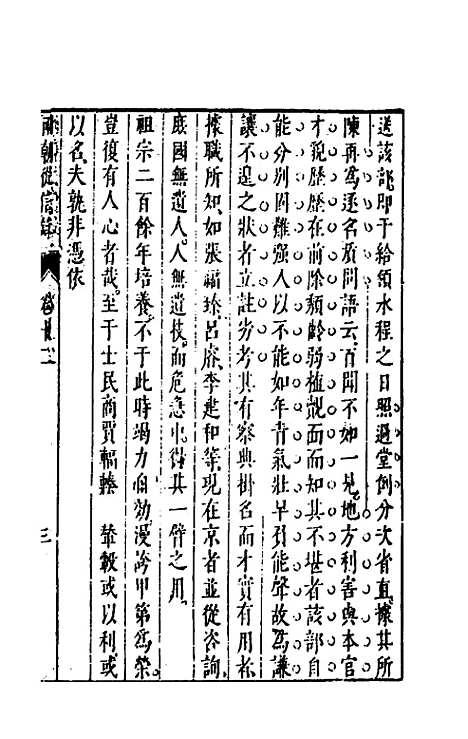 送該部卽于給領水程之日照過堂例分次省直據其所
陳再爲逐名質問語云百聞不如一見地方利害與本官
才貌歷歷在前除頽齡弱植覿面而知其不堪者該部自
能分別固難强人以不能如年青氣壯早負能聲故爲謙
讓不遑之狀者立註劣考其有察典掛名而才實有用衆
據職所知如張福臻呂 李建和等現在京者並從咨詢
庶國無遺人人無遺技而危急中得其一臂之用
祖宗二百餘年培養不于此時竭力自効漫誇甲第爲榮
豈復有人心者哉至于士民商賈輻輳 輦轂或以利或
以名夫孰非憑依
兩朝從信錄 卷 三